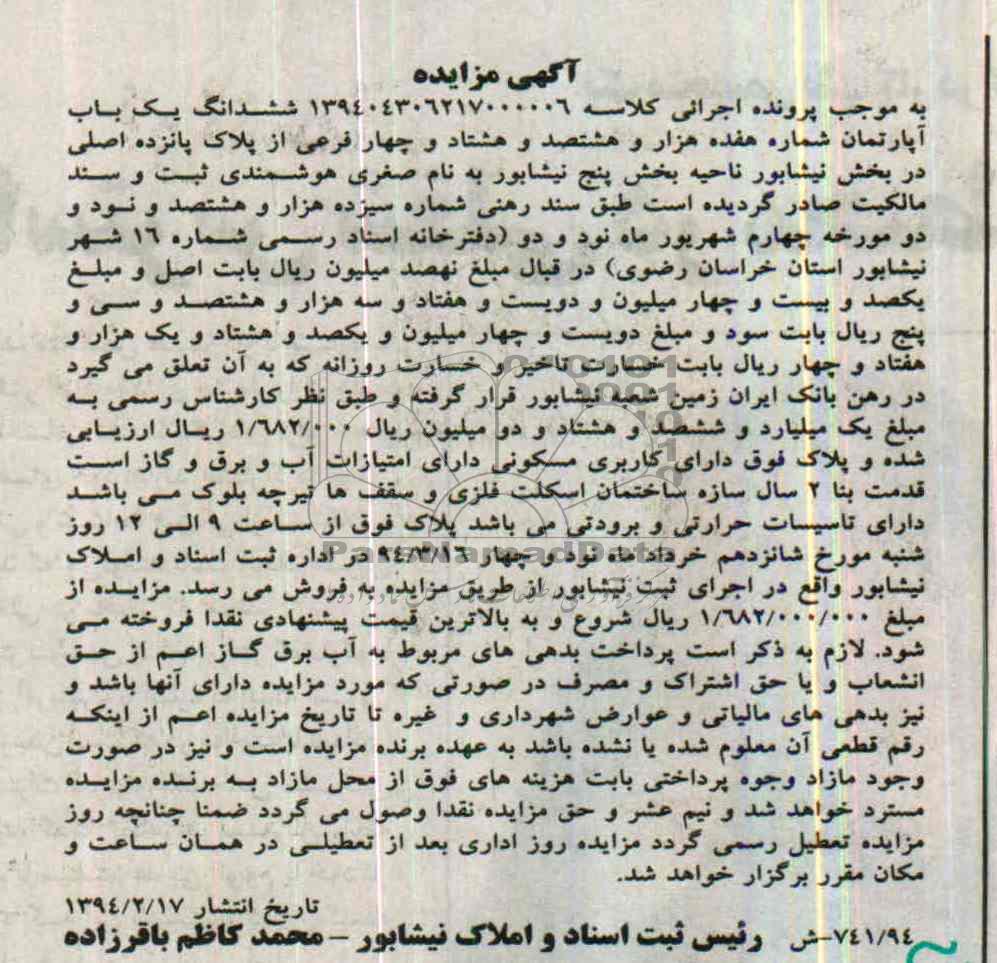 آگهی مزایده
به موجب پرونده اجرائی کلاسه ۱۳۹٤۰٤۳۰٦۲۱۷۰۰۰۰۰٦ ششدانگ یک باب
آپارتمان شماره هفده هزار و هشتصد و هشتاد و چهار فرعی از پلاک پانزده اصلی
در بخش نیشابور ناحیه بخش پنج نیشابور به نام صغری هوشمندی ثبت و سند
مالکیت صادر گردیده است طبق سند رهنی شماره سیزده هزار و هشتصد و نود و
دو مورخه چهارم شهریور ماه نود و دو (دفترخانه اسناد رسمی شماره ۱٦ شهر
نیشابور استان خراسان رضوی) در قبال مبلغ نهصد میلیون ریال بابت اصل و مبلغ
یکصد و بیست و چهار میلیون و دویست و هفتاد و سه هزار و هشتصد و سی و
پنج ریال بابت سود و مبلغ دویست و چهار میلیون و یکصد و هشتاد و یک هزار و
هفتاد و چهار ریال بابت خسارت تاخیر و خسارت روزانه که به آن تعلق می گیرد
در رهن بانک ایران زمین شعبه نیشابور قرار گرفته و طبق نظر کارشناس رسمی به
مبلغ یک میلیارد و ششصد و هشتاد و دو میلیون ریال ۱/٦۸۲/۰۰۰ ریال ارزیابی
شده و پلاک فوق دارای کاربری مسکونی دارای امتیازات آب و برق و گاز است
قدمت بنا ۲ سال سازه ساختمان اسکلت فلزی و سقف ها تیرچه بلوک می باشد
دارای تاسیسات حرارتی و برودتی می باشد پلاک فوق از ساعت ۹ الی ۱۲ روز
شنبه مورخ شانزدهم خرداد ماه نود و چهار ۹٤/۳/۱٦ در اداره ثبت اسناد و املاک
نیشابور واقع در اجرای ثبت نیشابور از طریق مزایده به فروش می رسد. مزایده از
مبلغ ۱/٦۸۲/۰۰۰/۰۰۰ ریال شروع و به بالاترین قیمت پیشنهادی نقدا فروخته می
شود. لازم به ذکر است پرداخت بدهی های مربوط به آب برق گاز اعم از حق
انشعاب و یا حق اشتراک و مصرف در صورتی که مورد مزایده دارای آنها باشد و
نیز بدهی های مالیاتی و عوارض شهرداری و غیره تا تاریخ مزایده اعم از اینکه
رقم قطعی آن معلوم شده یا نشده باشد به عهده برنده مزایده است و نیز در صورت
وجود مازاد وجوه پرداختی بابت هزینه های فوق از محل مازاد به برنده مزایده
مسترد خواهد شد و نیم عشر و حق مزایده نقدا وصول می گردد ضمنا چنانچه روز
مزایده تعطیل رسمی گردد مزایده روز اداری بعد از تعطیلی در همان ساعت و
مکان مقرر برگزار خواهد شد.
تاریخ انتشار ۱۳۹٤/۲/۱۷
۷٤۱/۹٤-ش رئیس ثبت اسناد و املاک نیشابور – محمد کاظم باقرزاده
ParsNamadData